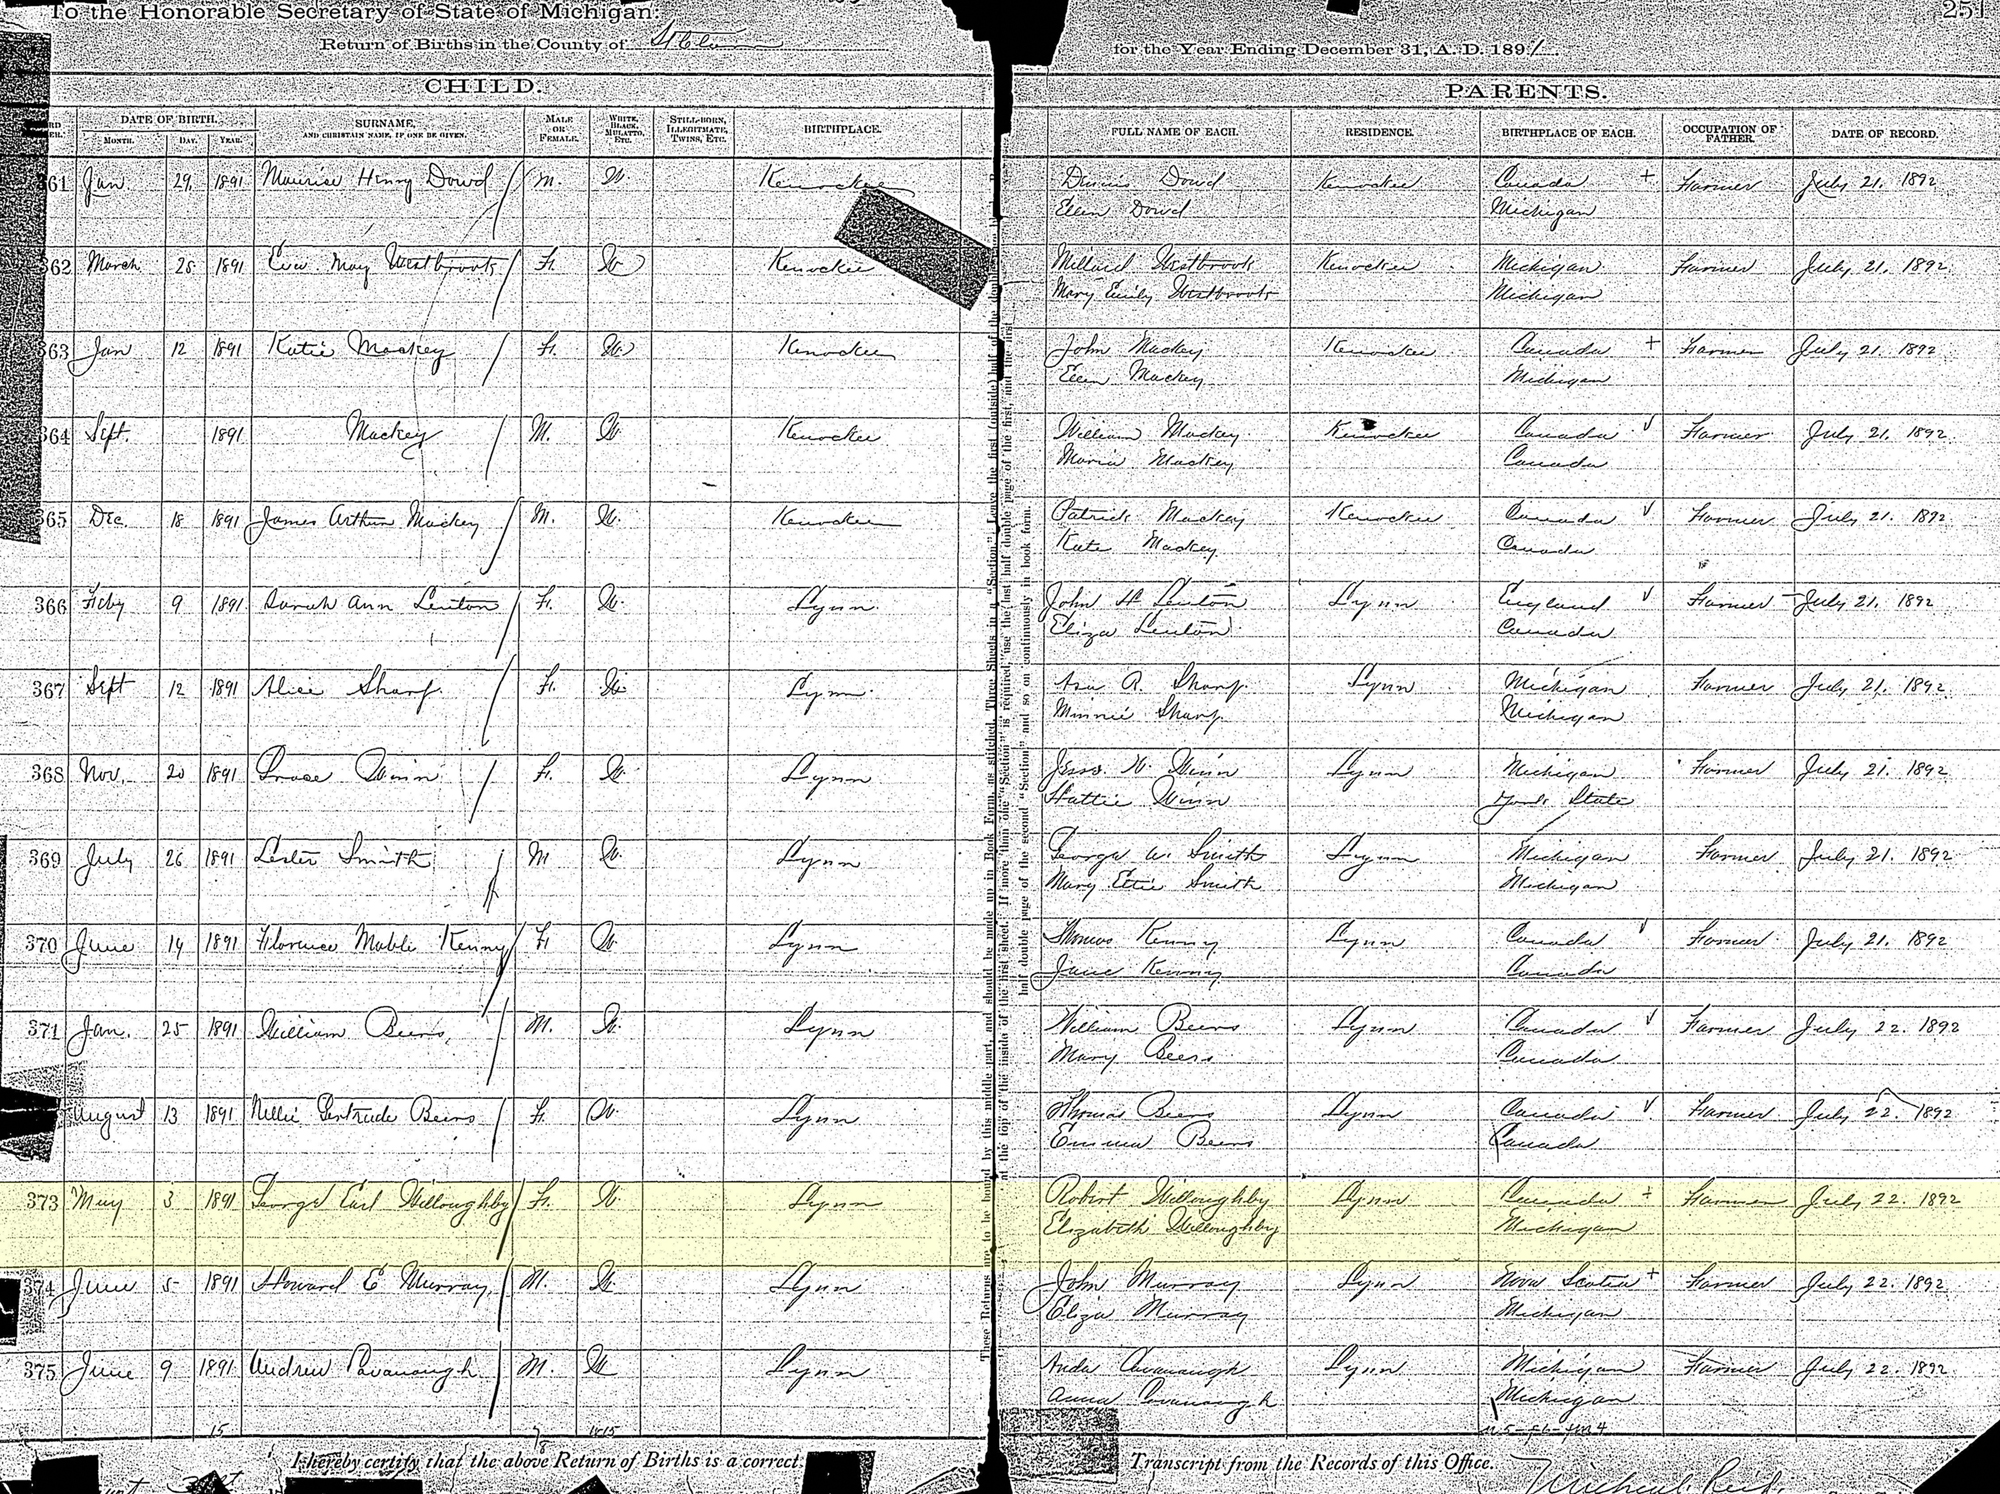 To the Honorable Secretary of State of Michigan:
251
Return of Births in the County of St Clair
for the Year Ending December 31, A. D. 1891.
CHILD.
PARENTS.
DATE OF BIRTH.
MONTH. DAY. YEAR.
SURNAME,
AND CHRISTIAN NAME, IF ONE BE GIVEN.
MALE
OR
FEMALE.
WHITE,
BLACK,
MULATTO,
ETC.
STILL-BORN,
ILLEGITIMATE,
TWINS, ETC.
BIRTHPLACE.
FULL NAME OF EACH.
RESIDENCE.
BIRTHPLACE OF EACH.
OCCUPATION OF
FATHER.
DATE OF RECORD.
361 Jan 29 1891 Maurise Henry Dowd M. W Kenockee Dinnis Dowd Kenockee Canada + Farmer July 21. 1892
Ellen Dowd Michigan
362 March 28 1891 Eva May Westbrook F. W Kenockee Millard Westbrook Kenockee Michigan Farmer July 21. 1892
Mary Emily Westbrook Michigan
363 Jan 12 1891 Katie Mackey F. W Kenockee John Mackey Kenockee Canada + Farmer July 21. 1892
Ellen Mackey Michigan
364 Sept. 1891 Mackey M. W. Kenockee William Mackey Kenockee Canada √ Farmer July 21. 1892
Maria Mackey Canada
365 Dec. 18 1891 James Arthur Mackey M. W. Kenockee Patrick Mackey Kenockee Canada √ Farmer July 21. 1892
Kate Mackey Canada
366 Feby 9 1891 Sarah Ann Lenton F. W. Lynn John H Lenton Lynn England √ Farmer July 21. 1892
Eliza Lenton Canada
367 Sept 12 1891 Alice Sharp F. W. Lynn Asa R. Sharp Lynn Michigan Farmer July 21. 1892
Minnie Sharp Michigan
368 Nov. 20 1891 Grace Winn F. W. Lynn W. Winn Lynn Michigan Farmer July 21. 1892
Hattie Winn York State
369 July 26 1891 Lester Smith M W. Lynn George W. Smith Lynn Michigan Farmer July 21. 1892
Mary Ettie Smith Michigan
370 June 14 1891 Florence Mable Kenny F. W. Lynn Thomas Kenny Lynn Canada √ Farmer July 21. 1892
Jane Kenny Canada
371 Jan. 25 1891 William Beers M. W. Lynn William Beers Lynn Canada √ Farmer July 22. 1892
Mary Beers Canada
August 13 1891 Nellie Gertrude Beers F. W. Lynn Thomas Beers Lynn Canada √ Farmer July 22. 1892
Emma Beers Canada
373 May 3 1891 George Earl Willoughby F. W. Lynn Robert Willoughby Lynn Canada + Farmer July 22. 1892
Elizabeth Willoughby Michigan
374 June 5 1891 Howard E Murray M. W. Lynn John Murray Lynn Nova Scotia + Farmer July 22. 1892
Eliza Murray Michigan
375 June 9 1891 Andrew Cavanaugh M. W Lynn Cavanaugh Lynn Michigan Farmer July 22. 1892
Anna Cavanaugh Michigan
15
I hereby certify that the above Return of Births is a correct
Transcript from the Records of this Office.